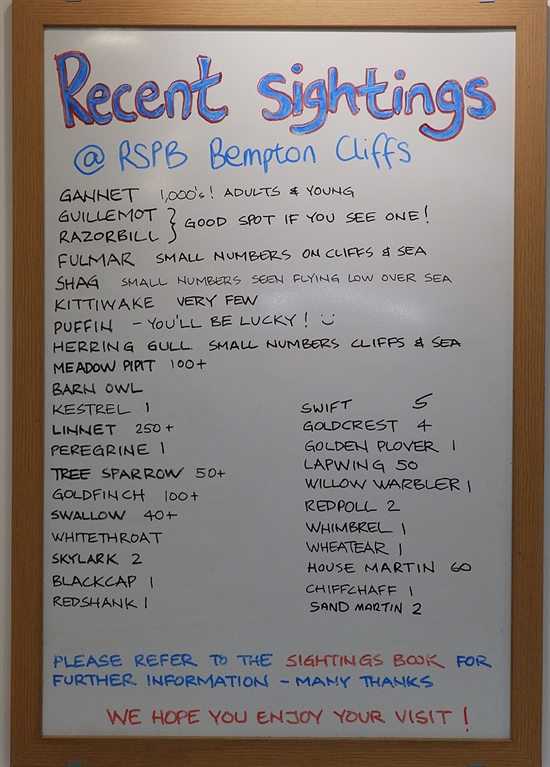 Recent Sightings
@ RSPB Bempton Cliffs
GANNET 1,000's! ADULTS & YOUNG
GUILLEMOT
RAZORBILL } GOOD SPOT IF YOU SEE ONE!
FULMAR SMALL NUMBERS ON CLIFFS & SEA
SHAG SMALL NUMBERS SEEN FLYING LOW OVER SEA
KITTIWAKE VERY FEW
PUFFIN - YOU'LL BE LUCKY! :)
HERRING GULL SMALL NUMBERS CLIFFS & SEA
MEADOW PIPIT 100+
BARN OWL
KESTREL 1
LINNET 250+
PEREGRINE 1
TREE SPARROW 50+
GOLDFINCH 100+
SWALLOW 40+
WHITETHROAT
SKYLARK 2
BLACKCAP 1
REDSHANK 1
SWIFT 5
GOLDCREST 4
GOLDEN PLOVER 1
LAPWING 50
WILLOW WARBLER 1
REDPOLL 2
WHIMBREL 1
WHEATEAR 1
HOUSE MARTIN 60
CHIFFCHAFF 1
SAND MARTIN 2
PLEASE REFER TO THE SIGHTINGS BOOK FOR
FURTHER INFORMATION - MANY THANKS
WE HOPE YOU ENJOY YOUR VISIT!